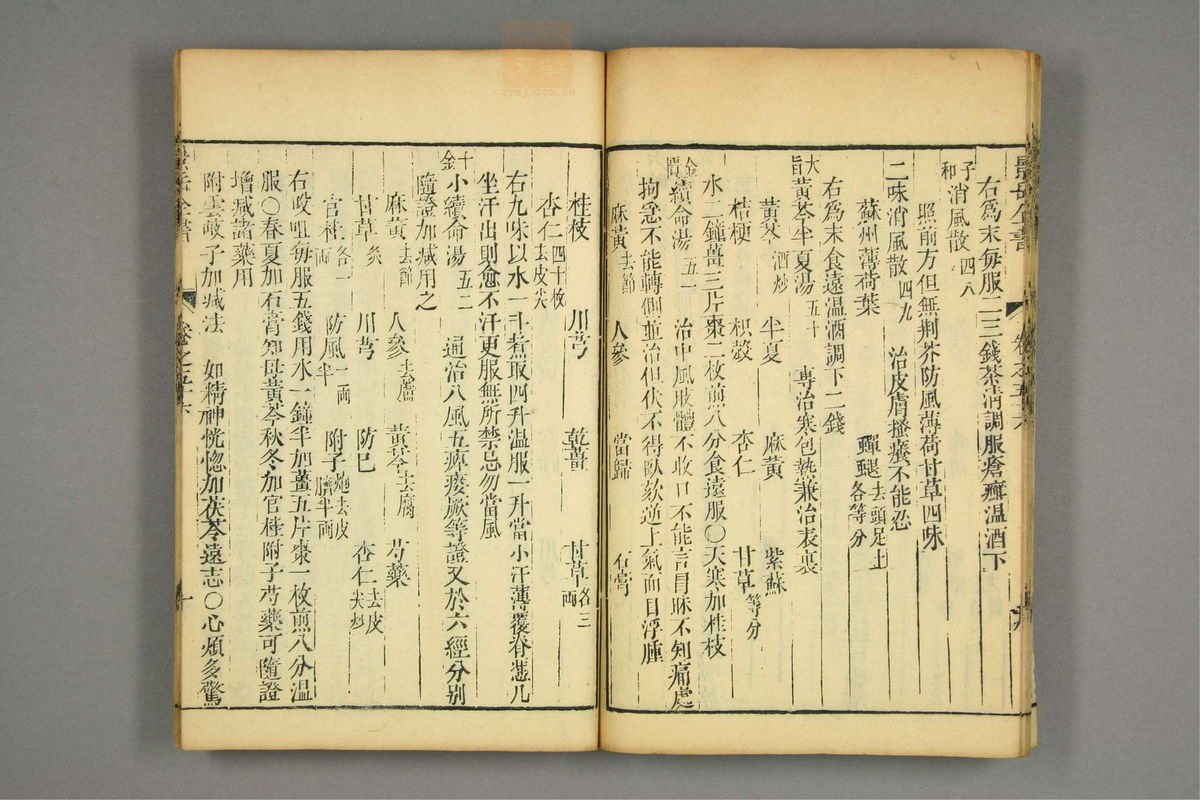 景岳全書
卷之五十六
右爲末每服二三錢茶清調服瘡癬温酒下
子和消風散四八
照前方但無荆芥防風薄荷甘草四味
二味消風散四九 治皮膚搔癢不能忍
蘇州薄荷葉 蟬蜕去頭足土各等分
右爲末食遠温酒調下二錢
大旨黄芩半夏湯五十 專治寒包熱兼治表裏
黄芩酒炒 半夏 麻黄 紫蘇
桔梗 枳殼 杏仁 甘草等分
水二鐘薑三片棗二枚煎八分食遠服○天寒加桂枝
金匱續命湯五一 治中風肢體不收口不能言冒昧不知痛處
拘急不能轉側並治但伏不得臥欬逆上氣面目浮腫
麻黄去節 人參 當歸 石膏
桂枝 川芎 乾薑 甘草各三兩
杏仁四十枚去皮尖
右九味以水一斗煮取四升温服一升當小汗薄覆脊慿几
坐汗出則愈不汗更服無所禁忌勿當風
千金小續命湯五二 通治八風五痺痿厥等證又於六經分别
隨證加减用之
麻黄去節 人參去蘆 黄芩去腐 芍藥
甘草炙 川芎 防已 杏仁去皮尖炒
官桂各一兩 防風一兩半 附子炮去皮臍半兩
右㕮咀每服五錢用水一鐘半加薑五片棗一枚煎八分温
服○春夏加石膏知母黄芩秋冬加官桂附子芍藥可隨證
增减諸藥用
附雲岐子加减法 如精神恍惚加茯苓遠志○心煩多驚
景岳全書
卷之五十六